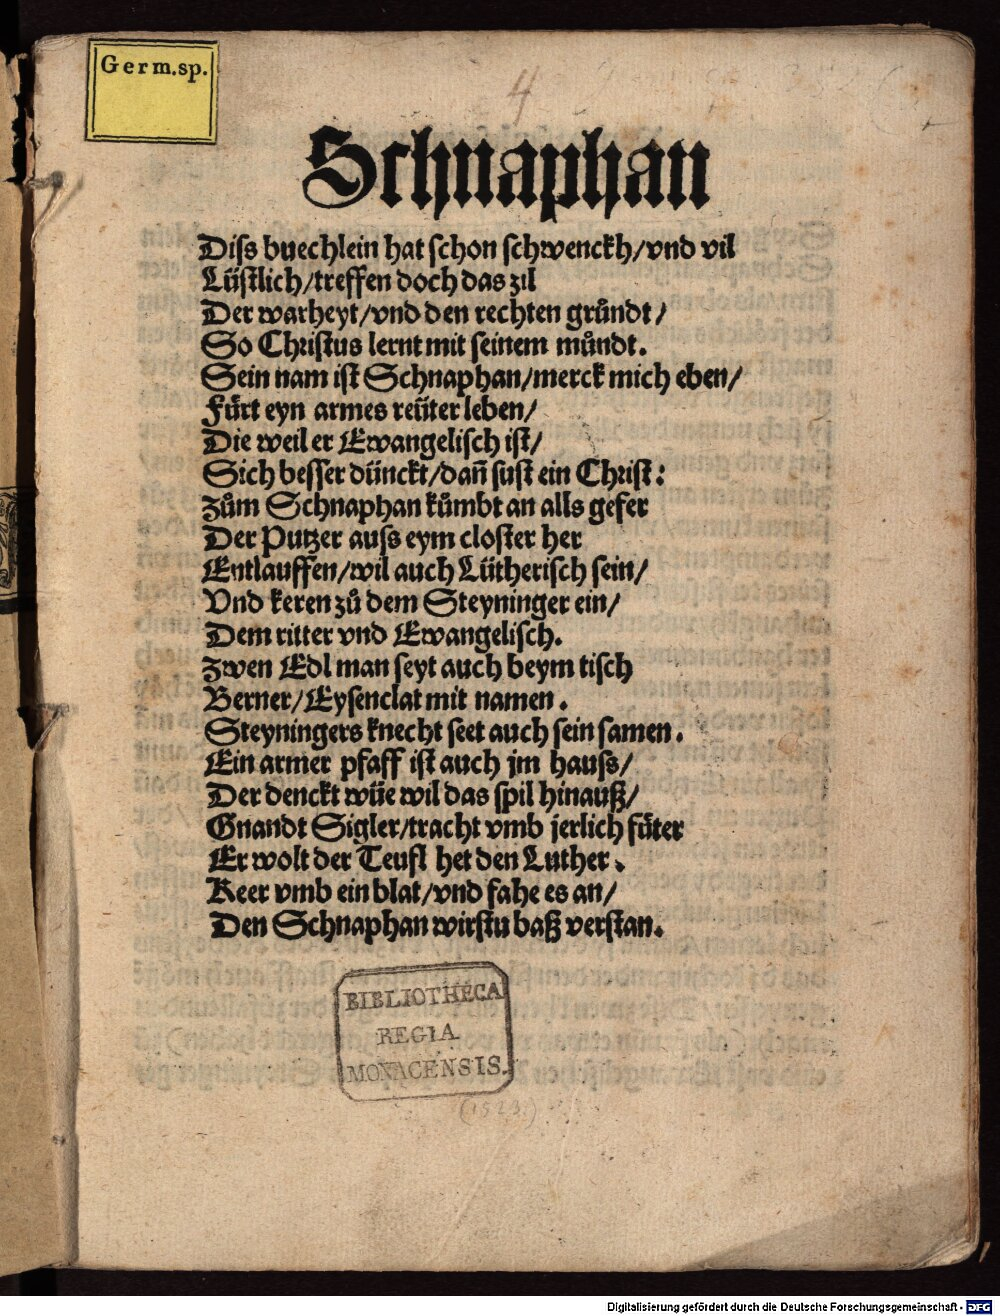 Germ.sp.
4
Schnaphan
Diss buechlein hat schon schwenckh/vnd vil
Lüstlich/treffen doch das zil
Der warheyt/vnd den rechten grůndt/
So Christus lernt mit seinem můndt.
Sein nam ist Schnaphan/merck mich eben/
Fürt eyn armes reüter leben/
Die weil er Ewangelisch ist/
Sich besser dünckt/dañ sust ein Christ:
Zům Schnaphan kůmbt an alls gefer
Der Putzer auss eym closter her
Entlauffen/wil auch Lütherisch sein/
Vnd keren zů dem Steyninger ein/
Dem ritter vnd Ewangelisch.
Zwen Edl man seyt auch beym tisch
Berner/Eysenclat mit namen.
Steyningers knecht seet auch sein samen.
Ein armer pfaff ist auch jm hauss/
Der denckt wüe wil das spil hinauß/
Gnandt Sigler/tracht vmb jerlich fůter
Er wolt der Teufl het den Luther.
Keer vmb ein blat/vnd fahe es an/
Den Schnaphan wirstu baß verstan.
BIBLIOTHECA
REGIA
MONACENSIS.
(1523.)
Digitalisierung gefördert durch die Deutsche Forschungsgemeinschaft - DFG